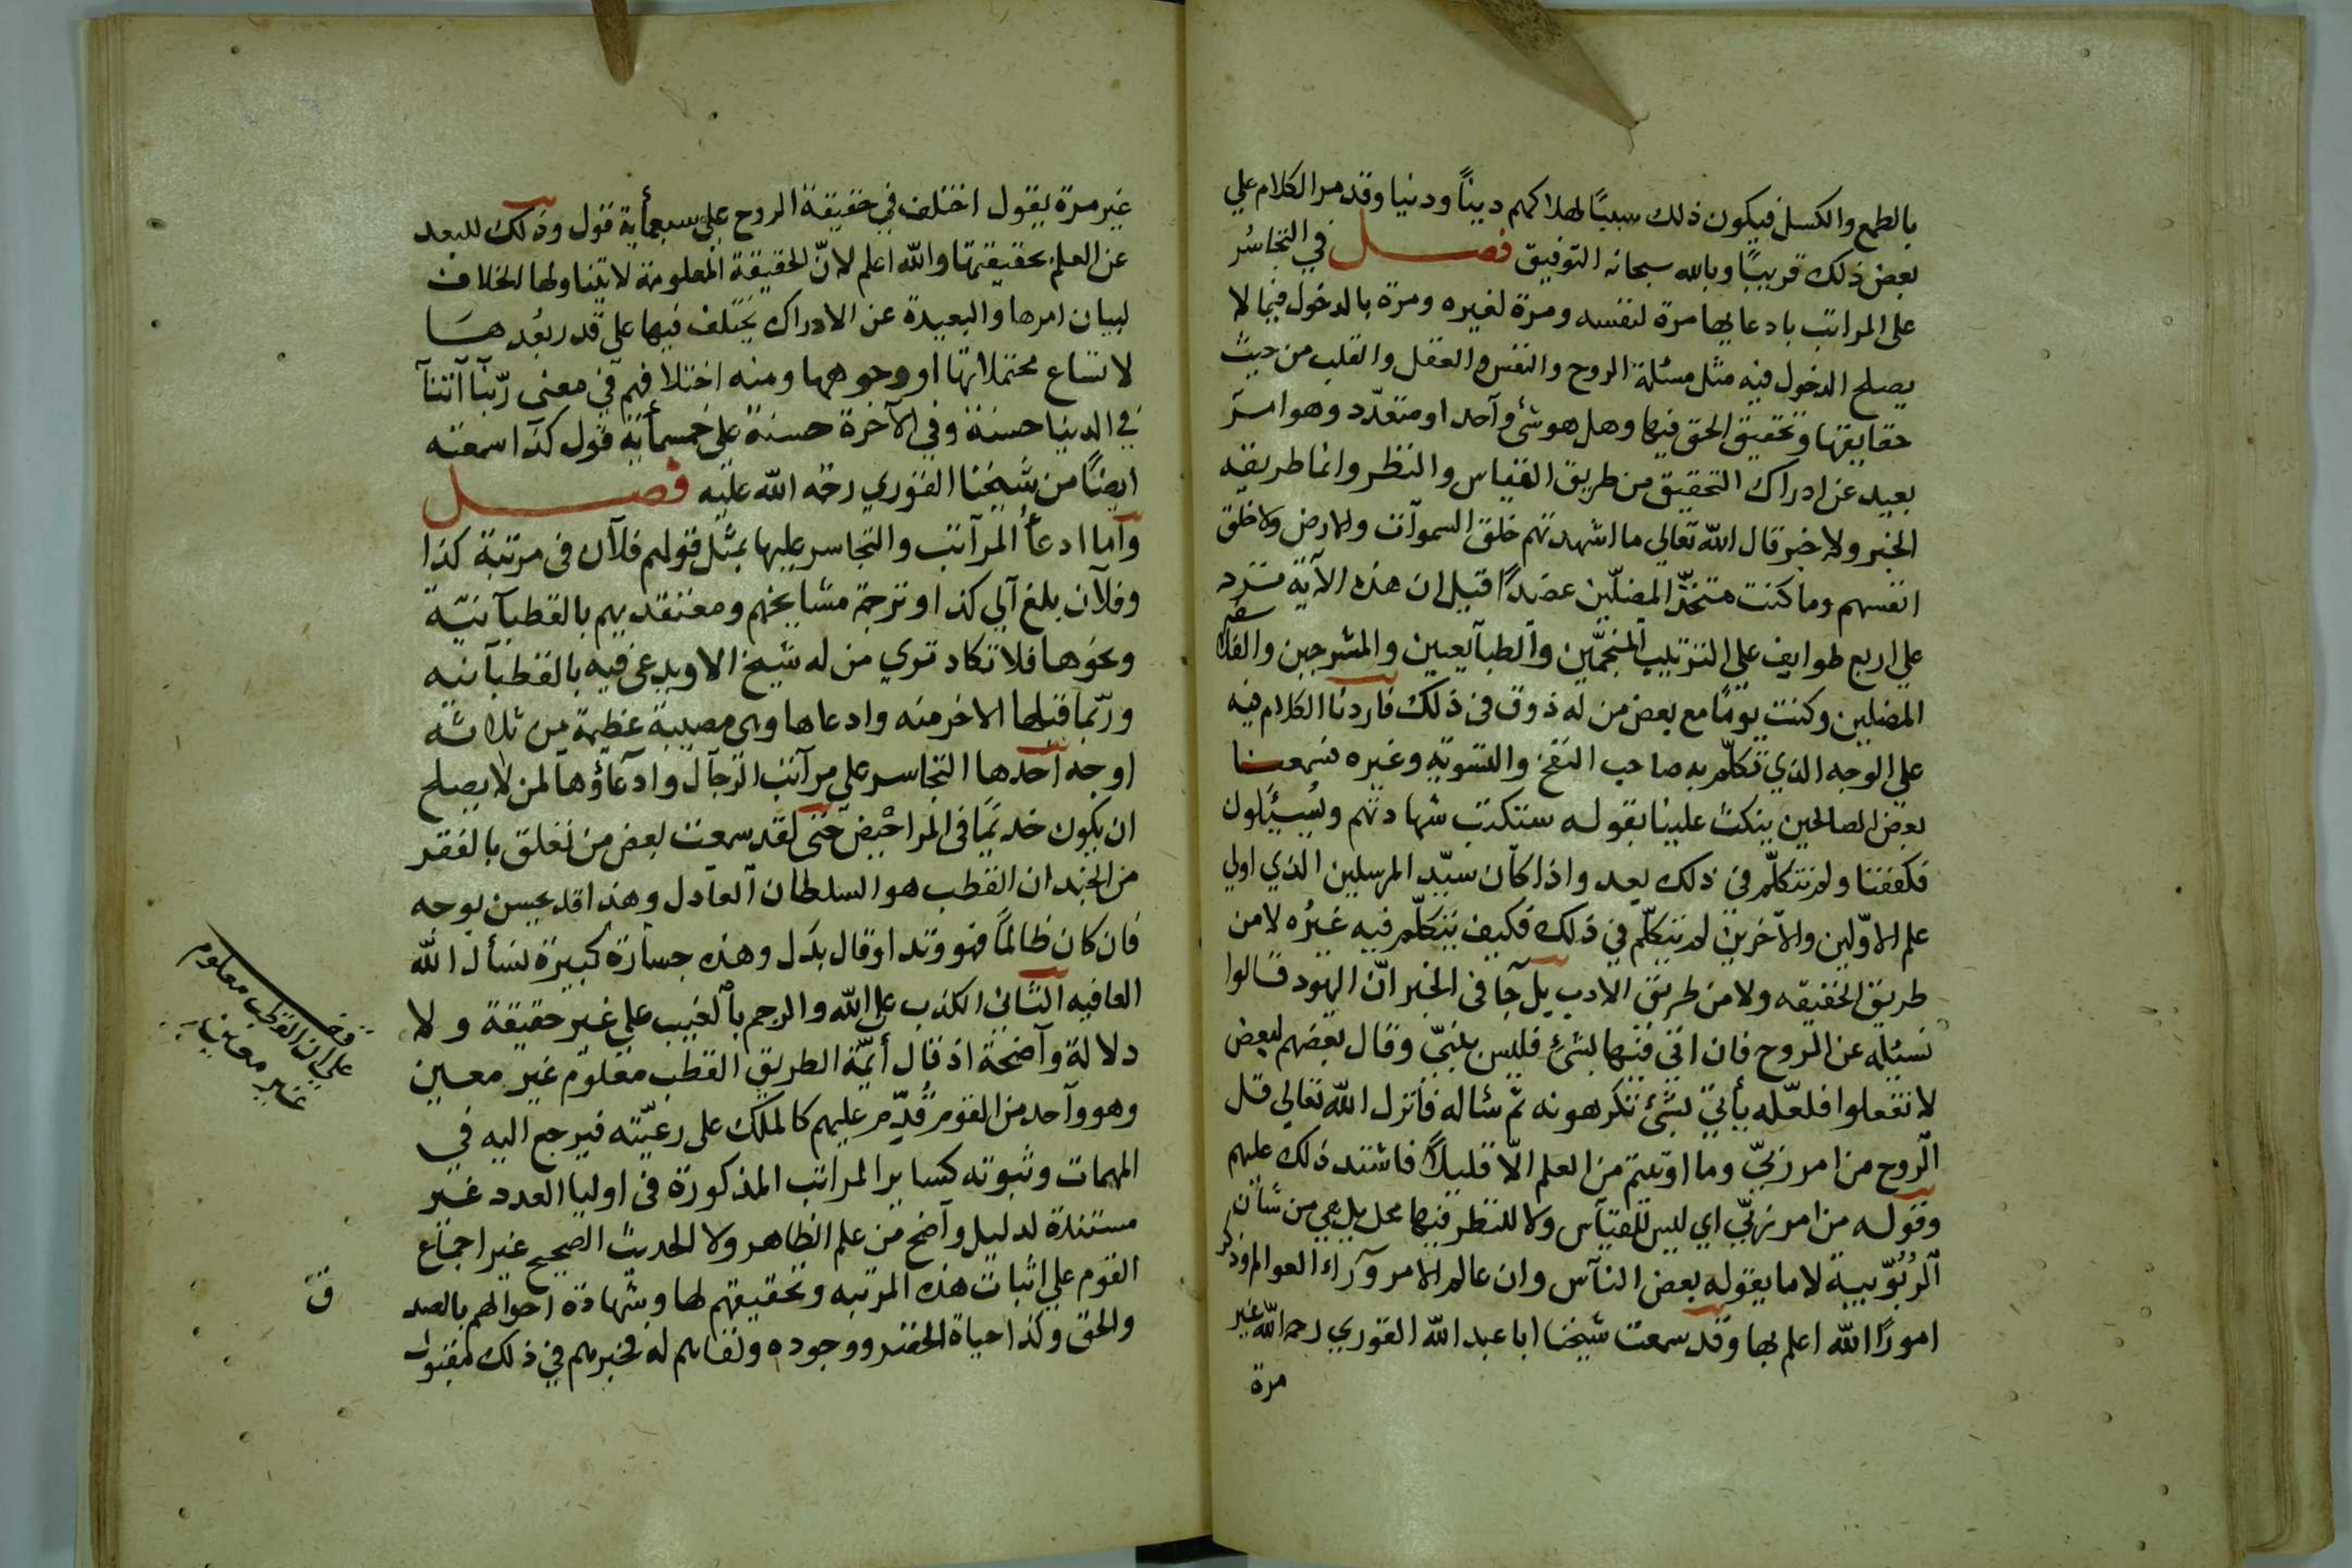 بالطمع والكسل فيكون ذلك سببًا لهلاكهم دينًا ودنيا وقد مر الكلام علي
بعض ذلك قريبًا وبالله سبحانه التوفيق فصل في التجاسُر
على المراتب بادعايها مرة لنفسه ومرة لغيره ومرة بالدخول فيما لا
يصلح الدخول فيه مثل مسئلة الروح والنفس والعقل والقلب من حيث
حقايقها وتحقيق الحق فيها وهل هو شئ واحد او متعدّد وهو امر
بعيد عن ادراك التحقيق من طريق القياس والنظر وانما طريقه
الخبر ولا خبر قال الله تعالي ما اشهدتهم خلق السموات والارض ولا خلق
انفسهم وما كنت متخذ المضلّين عضدًا قيل ان هذه الآية تَرد
علي اربع طوايف علي الترتيب المنجمّين والطبآيعيين والمشرحين والفلاسفه
المضلين وكنت يومًا مع بعض من له ذوق في ذلك فاردنا الكلام فيه
على الوجه الذي تكلّم به صاحب النفخ والتسويه وغيره فسمعنا
بعض الصالحين ينكت علينا بقوله ستكتب شهادتهم ويُسئلون
فكففنا ولم نتكلّم في ذلك بعد واذا كان سيّد المرسلين الذي اوتي
علم الاوّلين والاخرين لم يتكلّم في ذلك فكيف يتكلّم فيه غيرُه لا من
طريق الحقيقه ولا من طريق الادب بل جا في الخبر انّ اليهود قالوا
نسئله عن الروح فان افتى فيها بشئ فليس بنبيّ وقال بعضهم لبعض
لا تفعلوا فلعّله يأتي بشئ تكرهونه ثم سئاله فانزل الله تعالي قل
الروح من امر ربيّ وما اوتيتم من العلم الّا قليلًا فاشتد ذلك عليهم
وقوله من امر ربيّ اي ليس للقياس ولا للنظر فيها محل بل هي من شان
الرُبُوّبية لا ما يقوله بعض الناس وان عالم الامر وراء العوالم وذكر
امورًا الله اعلم بها وقد سمعت شيخنا ابا عبد الله القوري رحمه الله غير
مرة
غير مرة يقول اختلف في حقيقة الروح على سبعمأية قول وذلك للبعد
عن العلم بحقيقتها والله اعلم لانّ الحقيقة المعلومة لا يتناولها الخلاف
لبيان امرها والبعيدة عن الادراك يختلف فيها على قدر بعُدها
لاتساع محتملاتها او وجوهها ومنه اختلافهم في معنى ربّنا آتنا
في الدنيا حسنة وفي الآخرة حسنة على خمسمأية قول كذا سمعته
ايضًا من شيخنا القوري رحمة الله عليه فصل
واما ادعاُ المراتب والتجاسر عليها بمثل قولهم فلان في مرتبة كذا
وفلان بلغ الي كذا او ترجمة مشايخهم ومعتقديهم بالقطبانيّة
ونحوها فلا تكاد تري من له شيخ الا ويدعى فيه بالقطبانيه
وربّما قبلها الاخر منه وادعاها وهي مصيبة عظيمة من ثلاثة
اوجه احدها التجاسر علي مراتب الرجال وادعاؤها لمن لا يصلح
ان يكون خديمًا في المراحيض حتى لقد سمعت بعض من تعلق بالفقر
من الجند ان القطب هو السلطان العادل وهذا قد يحسن بوجه
فان كان ظالمًا فهو وتد او قال بدل وهذه جسارة كبيرة نسأل الله
العافيه الثاني الكذب على الله والرجم بالغيب علي غير حقيقة ولا
دلالة واضحة اذ قال أيمّة الطريق القطب معلوم غير معين
وهو واحد من القوم قُدّم عليهم كالملك على رعيّته فيرجع اليه في
المهمات وثبوته كساير المراتب المذكورة في اوليا العدد غير
مستندة لدليل واضح من علم الظاهر ولا الحديث الصحيح غير اجماع
القوم علي اثبات هذه المرتبه وتحقيقهم لها وشهادة احوالهم بالصد
والحق وكذا حياة الخضر ووجوده ولقايهم له فخبرهم في ذلك مقبول
ق
قف
على ان القطب معلوم
غير معين